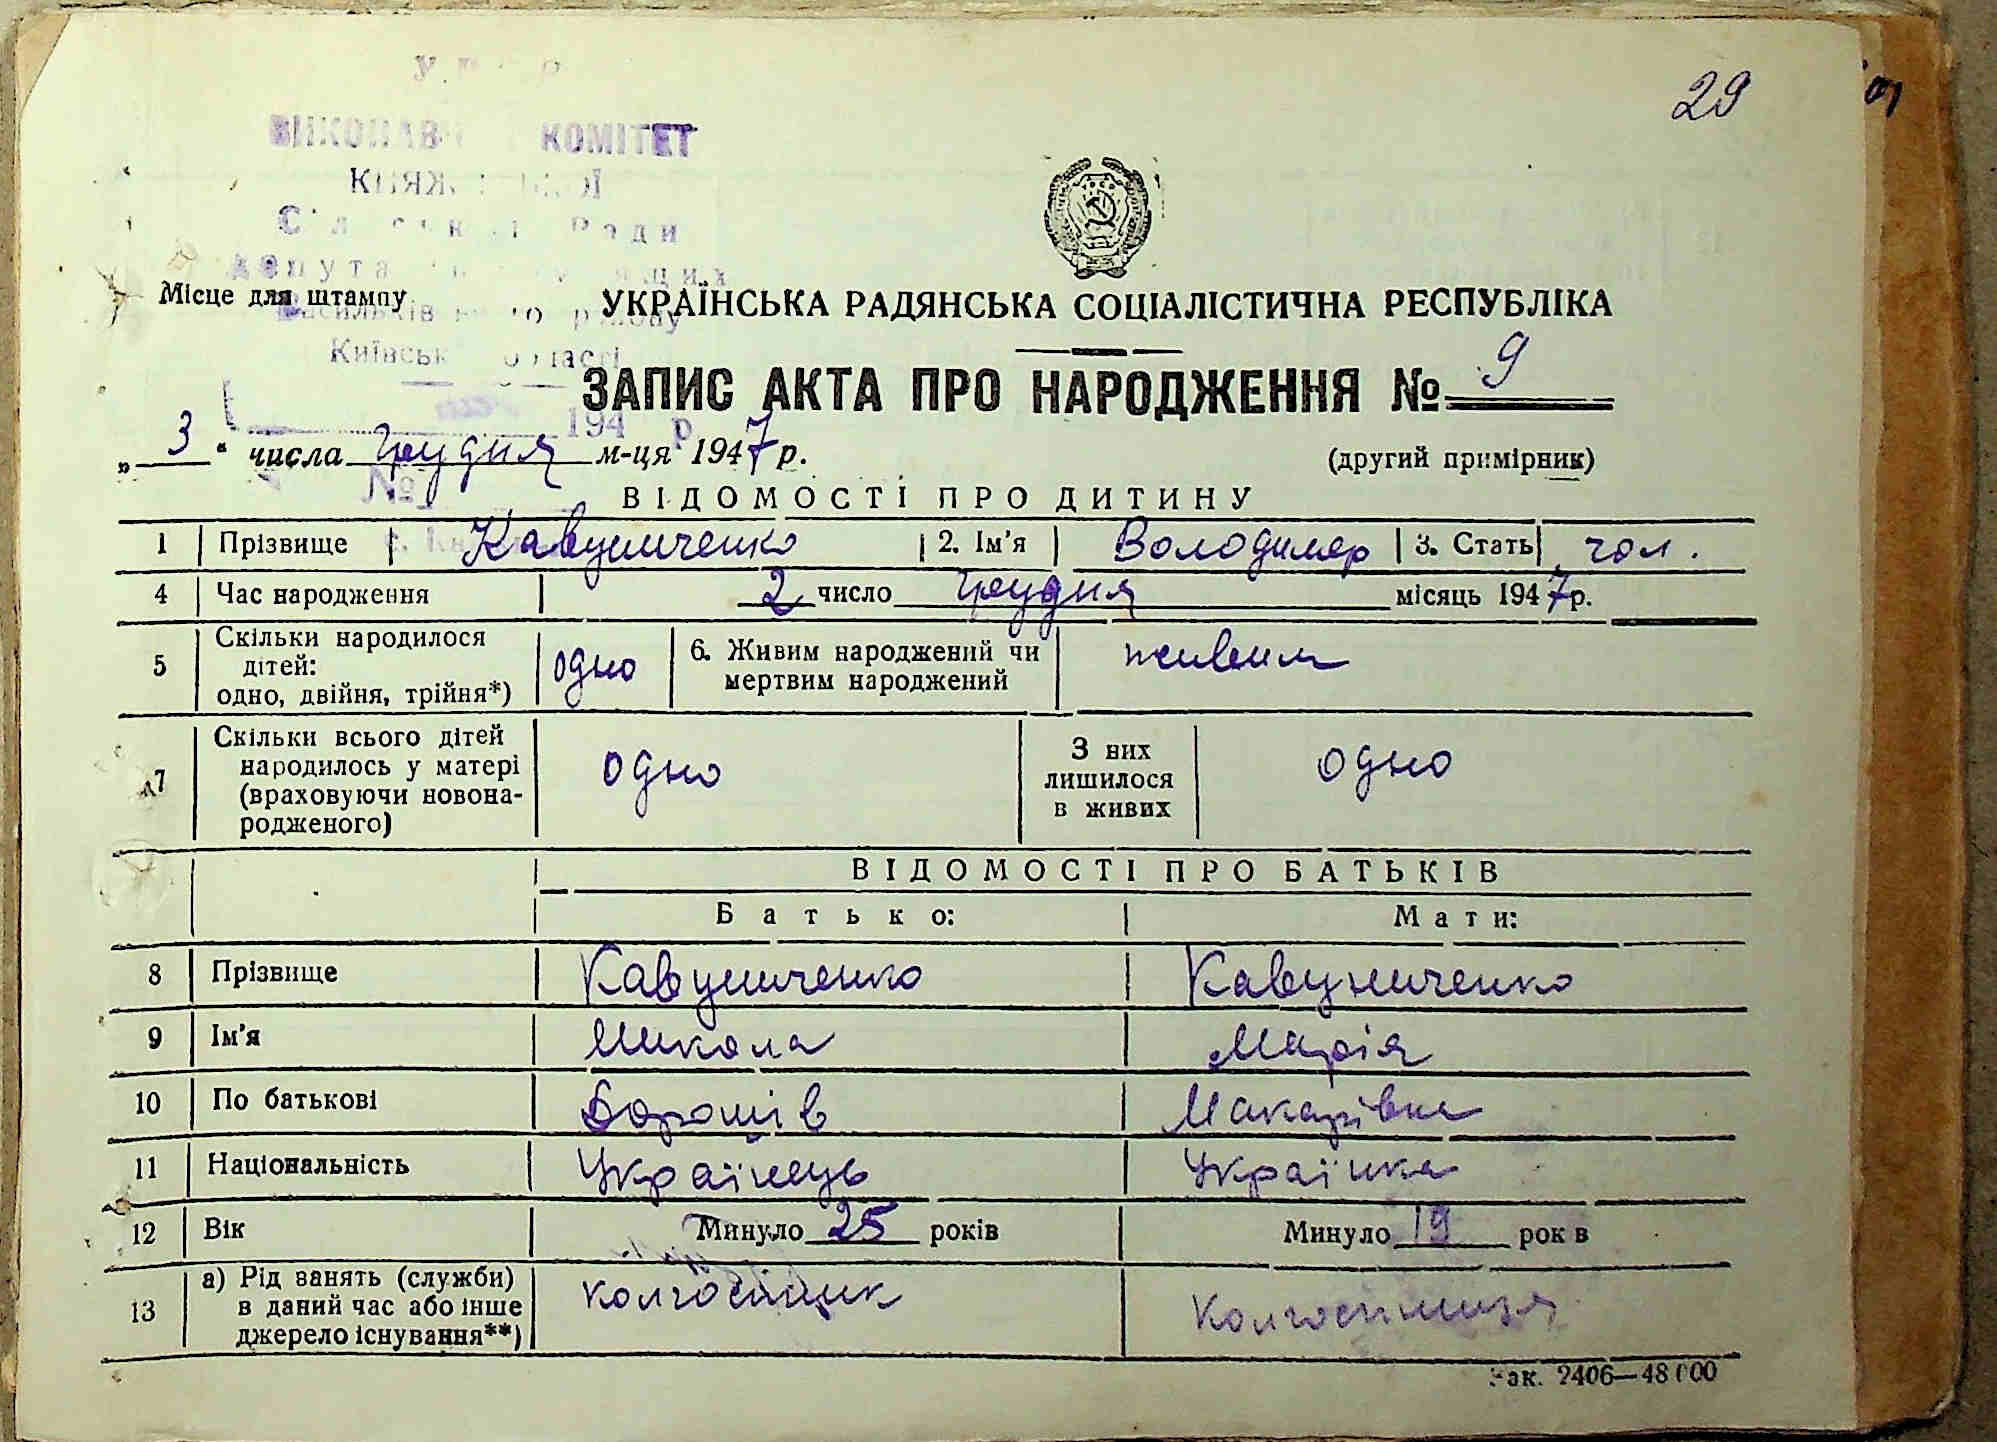 29
КОМІТЕТ
Ради
Місце для штампу
УКРАЇНСЬКА РАДЯНСЬКА СОЦІАЛІСТИЧНА РЕСПУБЛІКА
ЗАПИС АКТА ПРО НАРОДЖЕННЯ № 9
194 р.
„3“ числа грудня м-ця 1947 р.
(другий примірник)
№
ВІДОМОСТІ ПРО ДИТИНУ
1 Прізвище 2. Ім'я Володимер 3. Стать чол.
4 Час народження 2 число грудня місяць 1947 р.
5 Скільки народилося дітей: одно, двійня, трійня*) одно 6. Живим народжений чи мертвим народжений живим
7 Скільки всього дітей народилось у матері (враховуючи новонародженого) одно З них лишилося в живих одно
ВІДОМОСТІ ПРО БАТЬКІВ
Батько: Мати:
8 Прізвище
9 Ім'я Микола Марія
10 По батькові Макарівна
11 Національність Українець Українка
12 Вік Минуло 25 років Минуло 19 рок в
13 а) Рід занять (служби) в даний час або інше джерело існування**) колгоспник Колгоспниця
Зак. 2406—48000